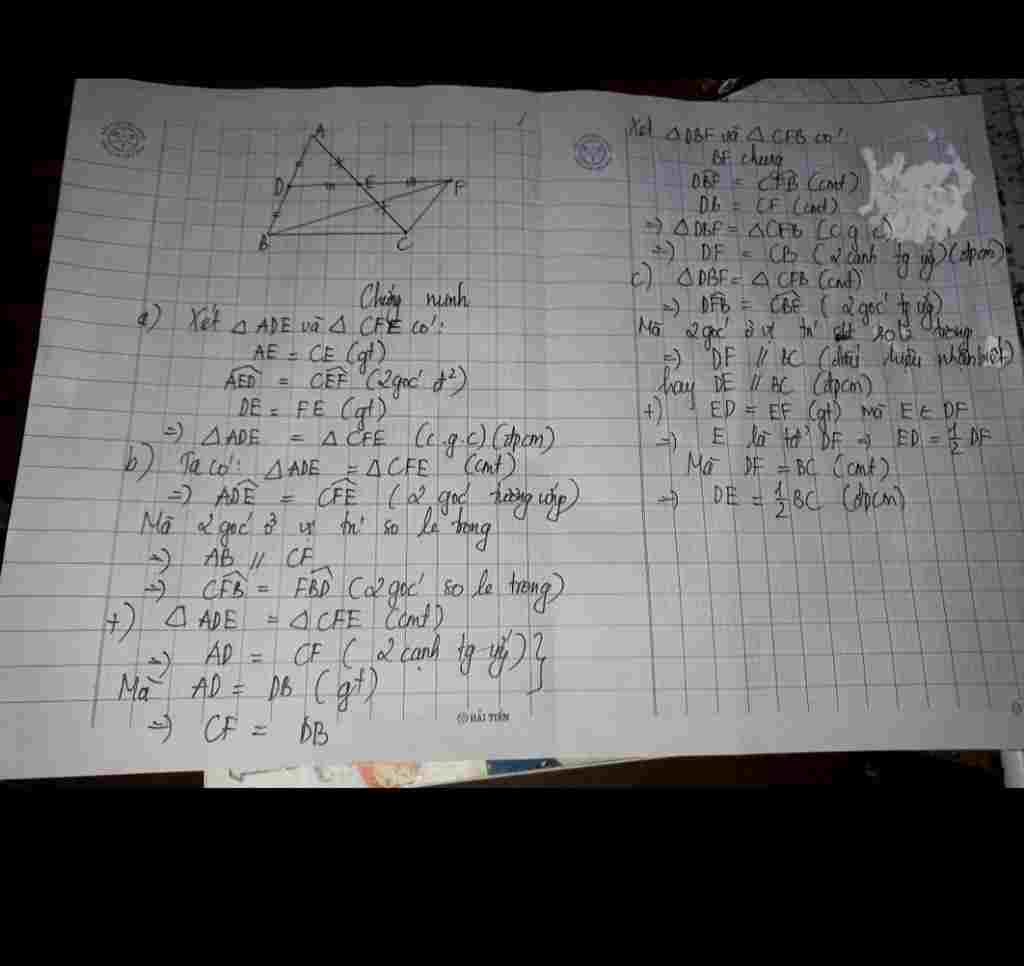 A
D
E
F
B
C
Chứng minh
a) Xét △ ADE và △ CFE có:
AE = CE (gt)
AED = CEF (2 góc đ²)
DE = FE (gt)
=> △ADE = △CFE (c.g.c) (đpcm)
b) Ta có: △ADE = △CFE (cmt)
=> ADE = CFE (2 góc tương ứng)
Mà 2 góc ở vị trí so le trong
=> AB // CF
=> CFB = FBD (2 góc so le trong)
+) △ ADE = △CFE (cmt)
=> AD = CF (2 cạnh tg ứng) }
Mà AD = DB (gt)
=> CF = DB
HẢI TIẾN
Xét △DBF và △CFB có:
BF chung
DBF = CFB (cmt)
DB = CF (cmt)
=> △DBF = △CFB (c.g.c)
=> DF = CB (2 cạnh tg ứng) (đpcm)
c) △DBF = △CFB (cmt)
=> DFB = CBF (2 góc tg ứng)
Mà 2 góc ở vị trí so le trong
=> DF // BC (dấu hiệu nhận biết)
hay DE // BC (đpcm)
+) ED = EF (gt) mà E ∈ DF
=> E là tđ DF => ED = 1/2 DF
Mà DF = BC (cmt)
=> DE = 1/2 BC (đpcm)